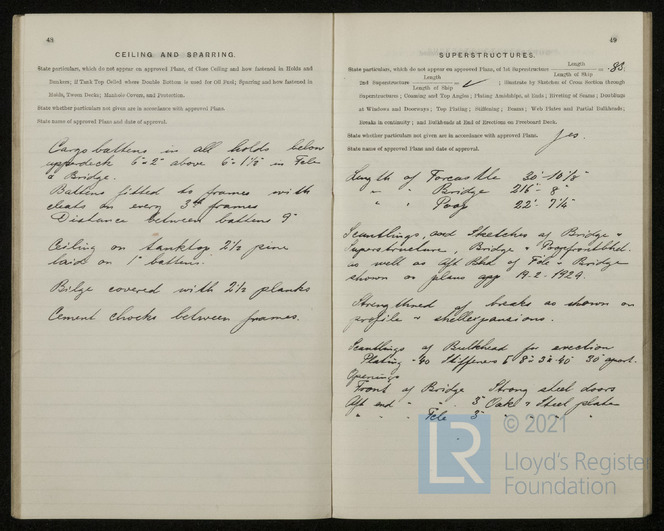 48
CEILING AND SPARRING.
State particulars, which do not appear on approved Plans, of Close Ceiling and how fastened in Holds and
Bunkers; if Tank Top Ceiled where Double Bottom is used for Oil Fuel; Sparring and how fastened in
Holds, Tween Decks; Manhole Covers, and Protection.
State whether particulars not given are in accordance with approved Plans.
State name of approved Plans and date of approval.
Cargo battens in all holds below
upperdeck 6" 2" above 6" 1½" in Fcle
& Bridge.
Battens fitted to frames with
cleats on every 3rd frames
Distance between battens 9"
Ceiling on tanktop 2½ pine
laid on 1" battens.
Bilge covered with 2½ planks
Cement chocks between frames.
49
SUPERSTRUCTURES.
State particulars, which do not appear on approved Plans, of 1st Superstructure Length / Length of Ship = .83.
2nd Superstructure Length / Length of Ship = ✓ ; illustrate by Sketches of Cross Section through
Superstructures; Coaming and Top Angles; Plating Amidships, at Ends; Riveting of Seams; Doublings
at Windows and Doorways; Top Plating; Stiffening; Beams; Web Plates and Partial Bulkheads;
Breaks in continuity; and Bulkheads at End of Erections on Freeboard Deck.
State whether particulars not given are in accordance with approved Plans. Yes.
State name of approved Plans and date of approval.
Length of Forcastle 30'-10⅝"
" " Bridge 216'-8"
" " Poop 22'-7¼"
Scantlings, and Sketches of Bridge &
Superstructure, Bridge & Poopfrontbhd.
as well as Aft Bhd of Fcle & Bridge
shown on plans app 19-2-1929.
of breaks as shown on
profile & shellexpansions.
Scantlings of Bulkhead for erection
Plating .40 Stiffeners 30" apart.
Openings
Front of Bridge Strong steel doors
Aft end " " 3" Oak & Steel plate
" " Fcle 3" " " "
LR
© 2021
Lloyd's Register
Foundation